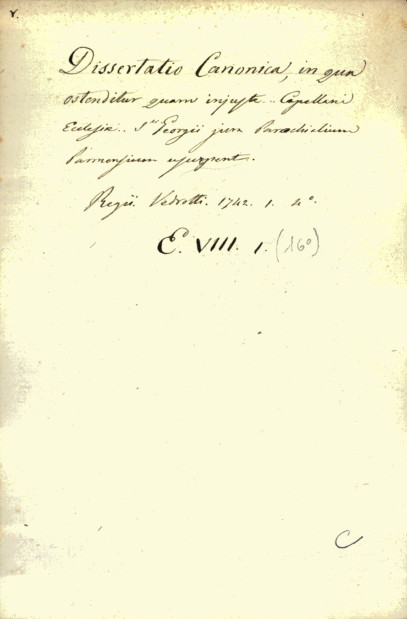 r.
Dissertatio Canonica, in qua
ostenditur quam injuste .. Capellani
Ecclesiæ .. Sti Georgii jura Parochialium
Parmensium usurpent.
Regii. Vedrotti. 1742. 1. 4°.
E. VIII. 1. (16°)
C